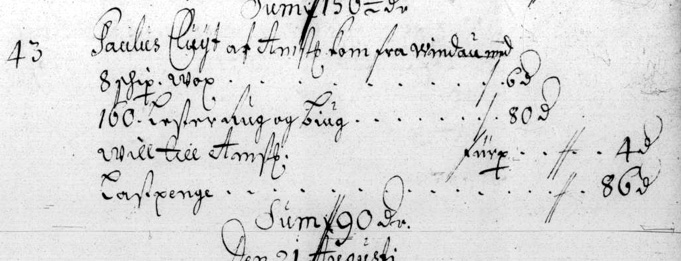 Sum 150 dr
43 Paulus Cluyt af Amst kom fra Windau med
8 schip. Wox . . . . . . . . 6 d
160. Lester Rug og Biug . . . . . . 80 d
Will till Amst. fürp . . . . 4 d
Lastpenge . . . . . . . . . . 86 d
Sum 90 dr.
Den 21 Augusti